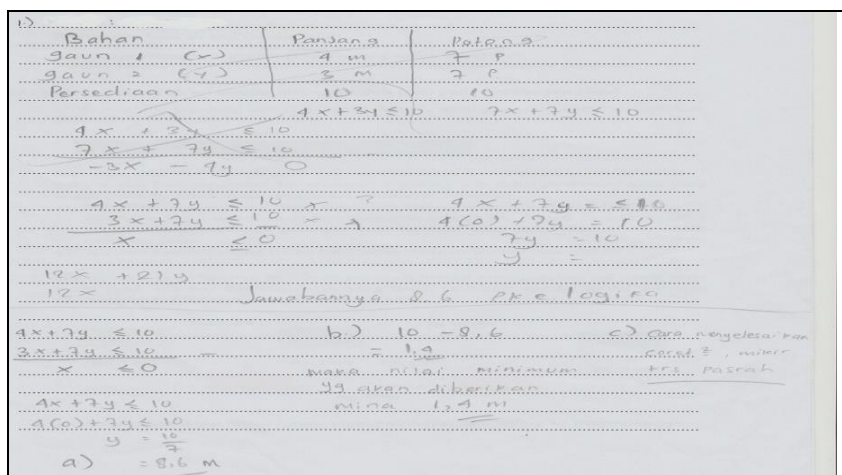 1.)
Bahan Panjang Potong
gaun 1 (x) 4 m 7 P
gaun 2 (y) 3 m 7 P
Persediaan 10 10
4x + 3y ≤ 10 7x + 7y ≤ 10
4x + 3y ≤ 10
7x + 7y ≤ 10
-3x - 4y 0
4x + 7y ≤ 10 x ? 4x + 7y = ≤ 10
3x + 7y ≤ 10 4(0) + 7y = 10
x ≤ 0 7y = 10
y =
12x + 21y
12x Jawabannya 8,6 pke logika
4x + 7y ≤ 10 b.) 10 - 8,6 c) Cara menyelesaikan
3x + 7y ≤ 10 - = 1,4 coret², mikir
x ≤ 0 maka nilai minimum trs pasrah
yg akan diberikan
4x + 7y ≤ 10 mina 1,4 m
4(0) + 7y ≤ 10
y = 10/7
a) = 8,6 m